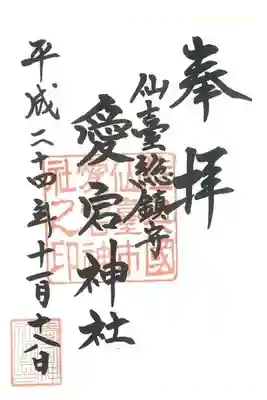 奉拝
仙臺総鎮守
愛宕神社
平成二十四年十一月十八日